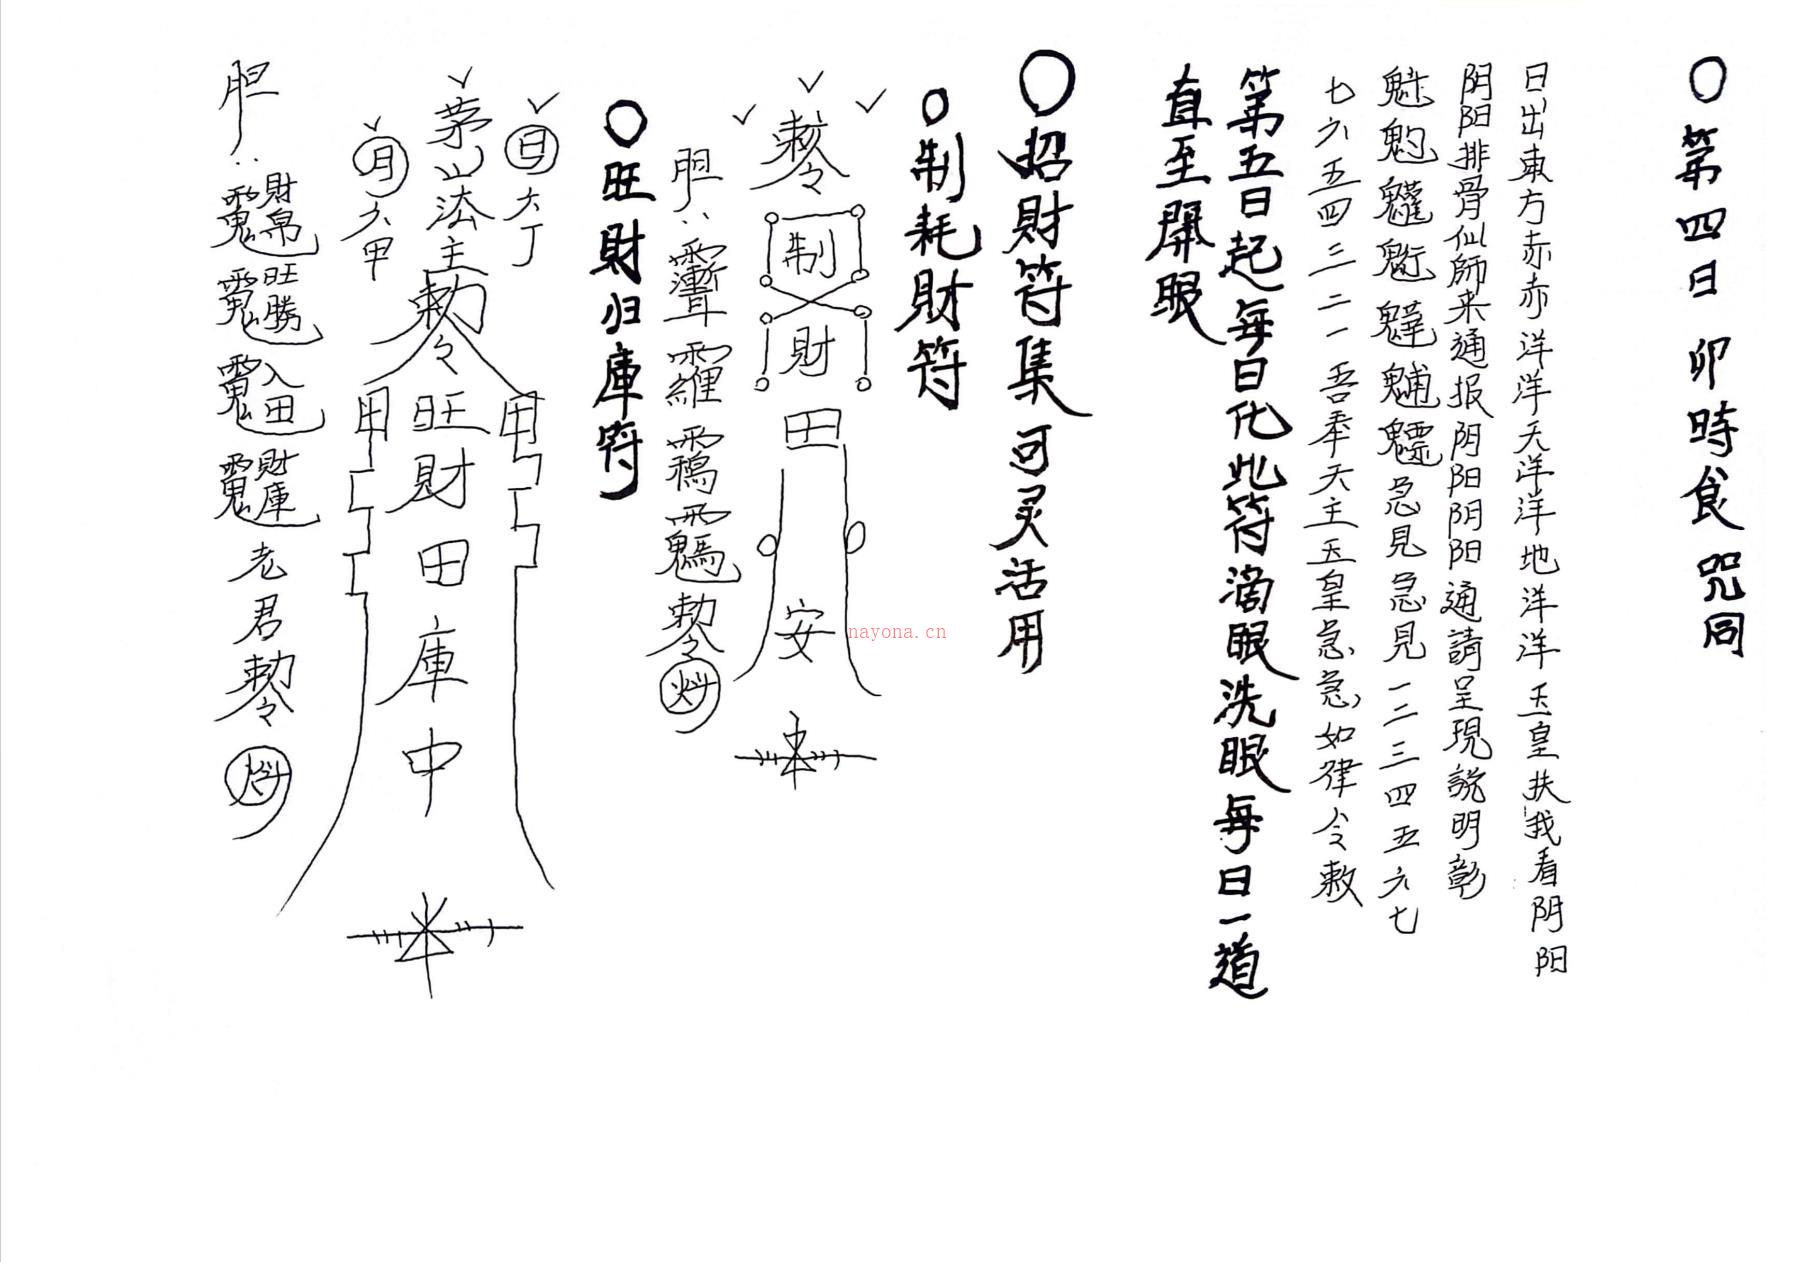 ○第四日卯時食咒同
日出東方赤赤洋洋天洋洋地洋洋玉皇扶我看阴阳
阴阳排骨仙師来通报阴阳阴阳通請呈現説明彰
急見急見一二三四五六七
七六五四三二一吾奉天主玉皇急急如律令敕
第五日起每日化此符滴眼洗眼每日一道
直至開眼
○招財符集可灵活用
○制耗財符
敕令
制
財
田
安
胆
敕令
○旺財归庫符
日六丁
茅山法主敕令
月六甲
旺財田庫中
胆
財帛旺勝入田財庫老君敕令
nayona.cn